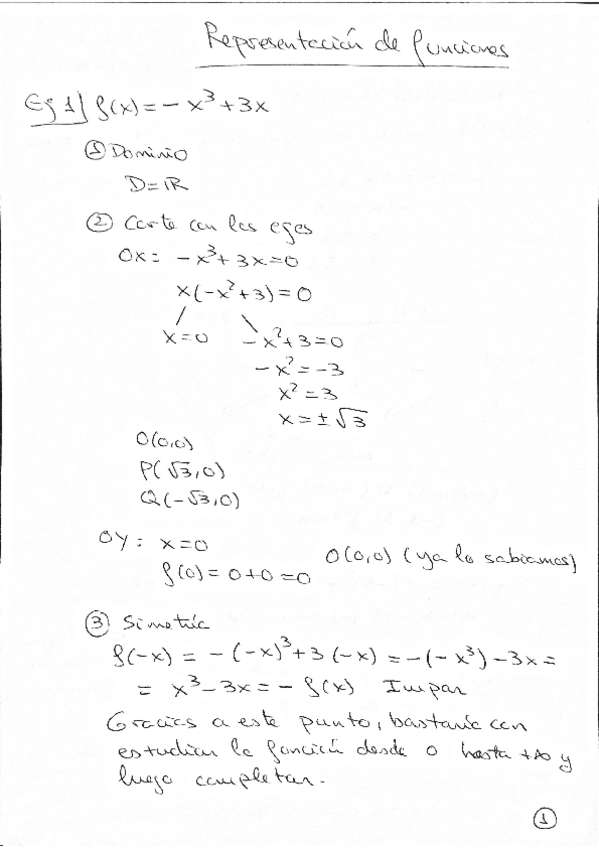 Representación de funciones
Ej 1) f(x) = - x³ + 3x
① Dominio
D = ℝ
② Corte con los ejes
OX: - x³ + 3x = 0
x(-x² + 3) = 0
x = 0   - x² + 3 = 0
- x² = -3
x² = 3
x = ± √3
O(0,0)
P(√3,0)
Q(-√3,0)
OY: x = 0
f(0) = 0 + 0 = 0   O(0,0) (ya lo sabíamos)
③ Simetría
f(-x) = - (-x)³ + 3(-x) = -(-x³) - 3x =
= x³ - 3x = - f(x)   Impar
Gracias a este punto, bastaría con
estudiar la función desde 0 hasta +∞ y
luego completar.
①